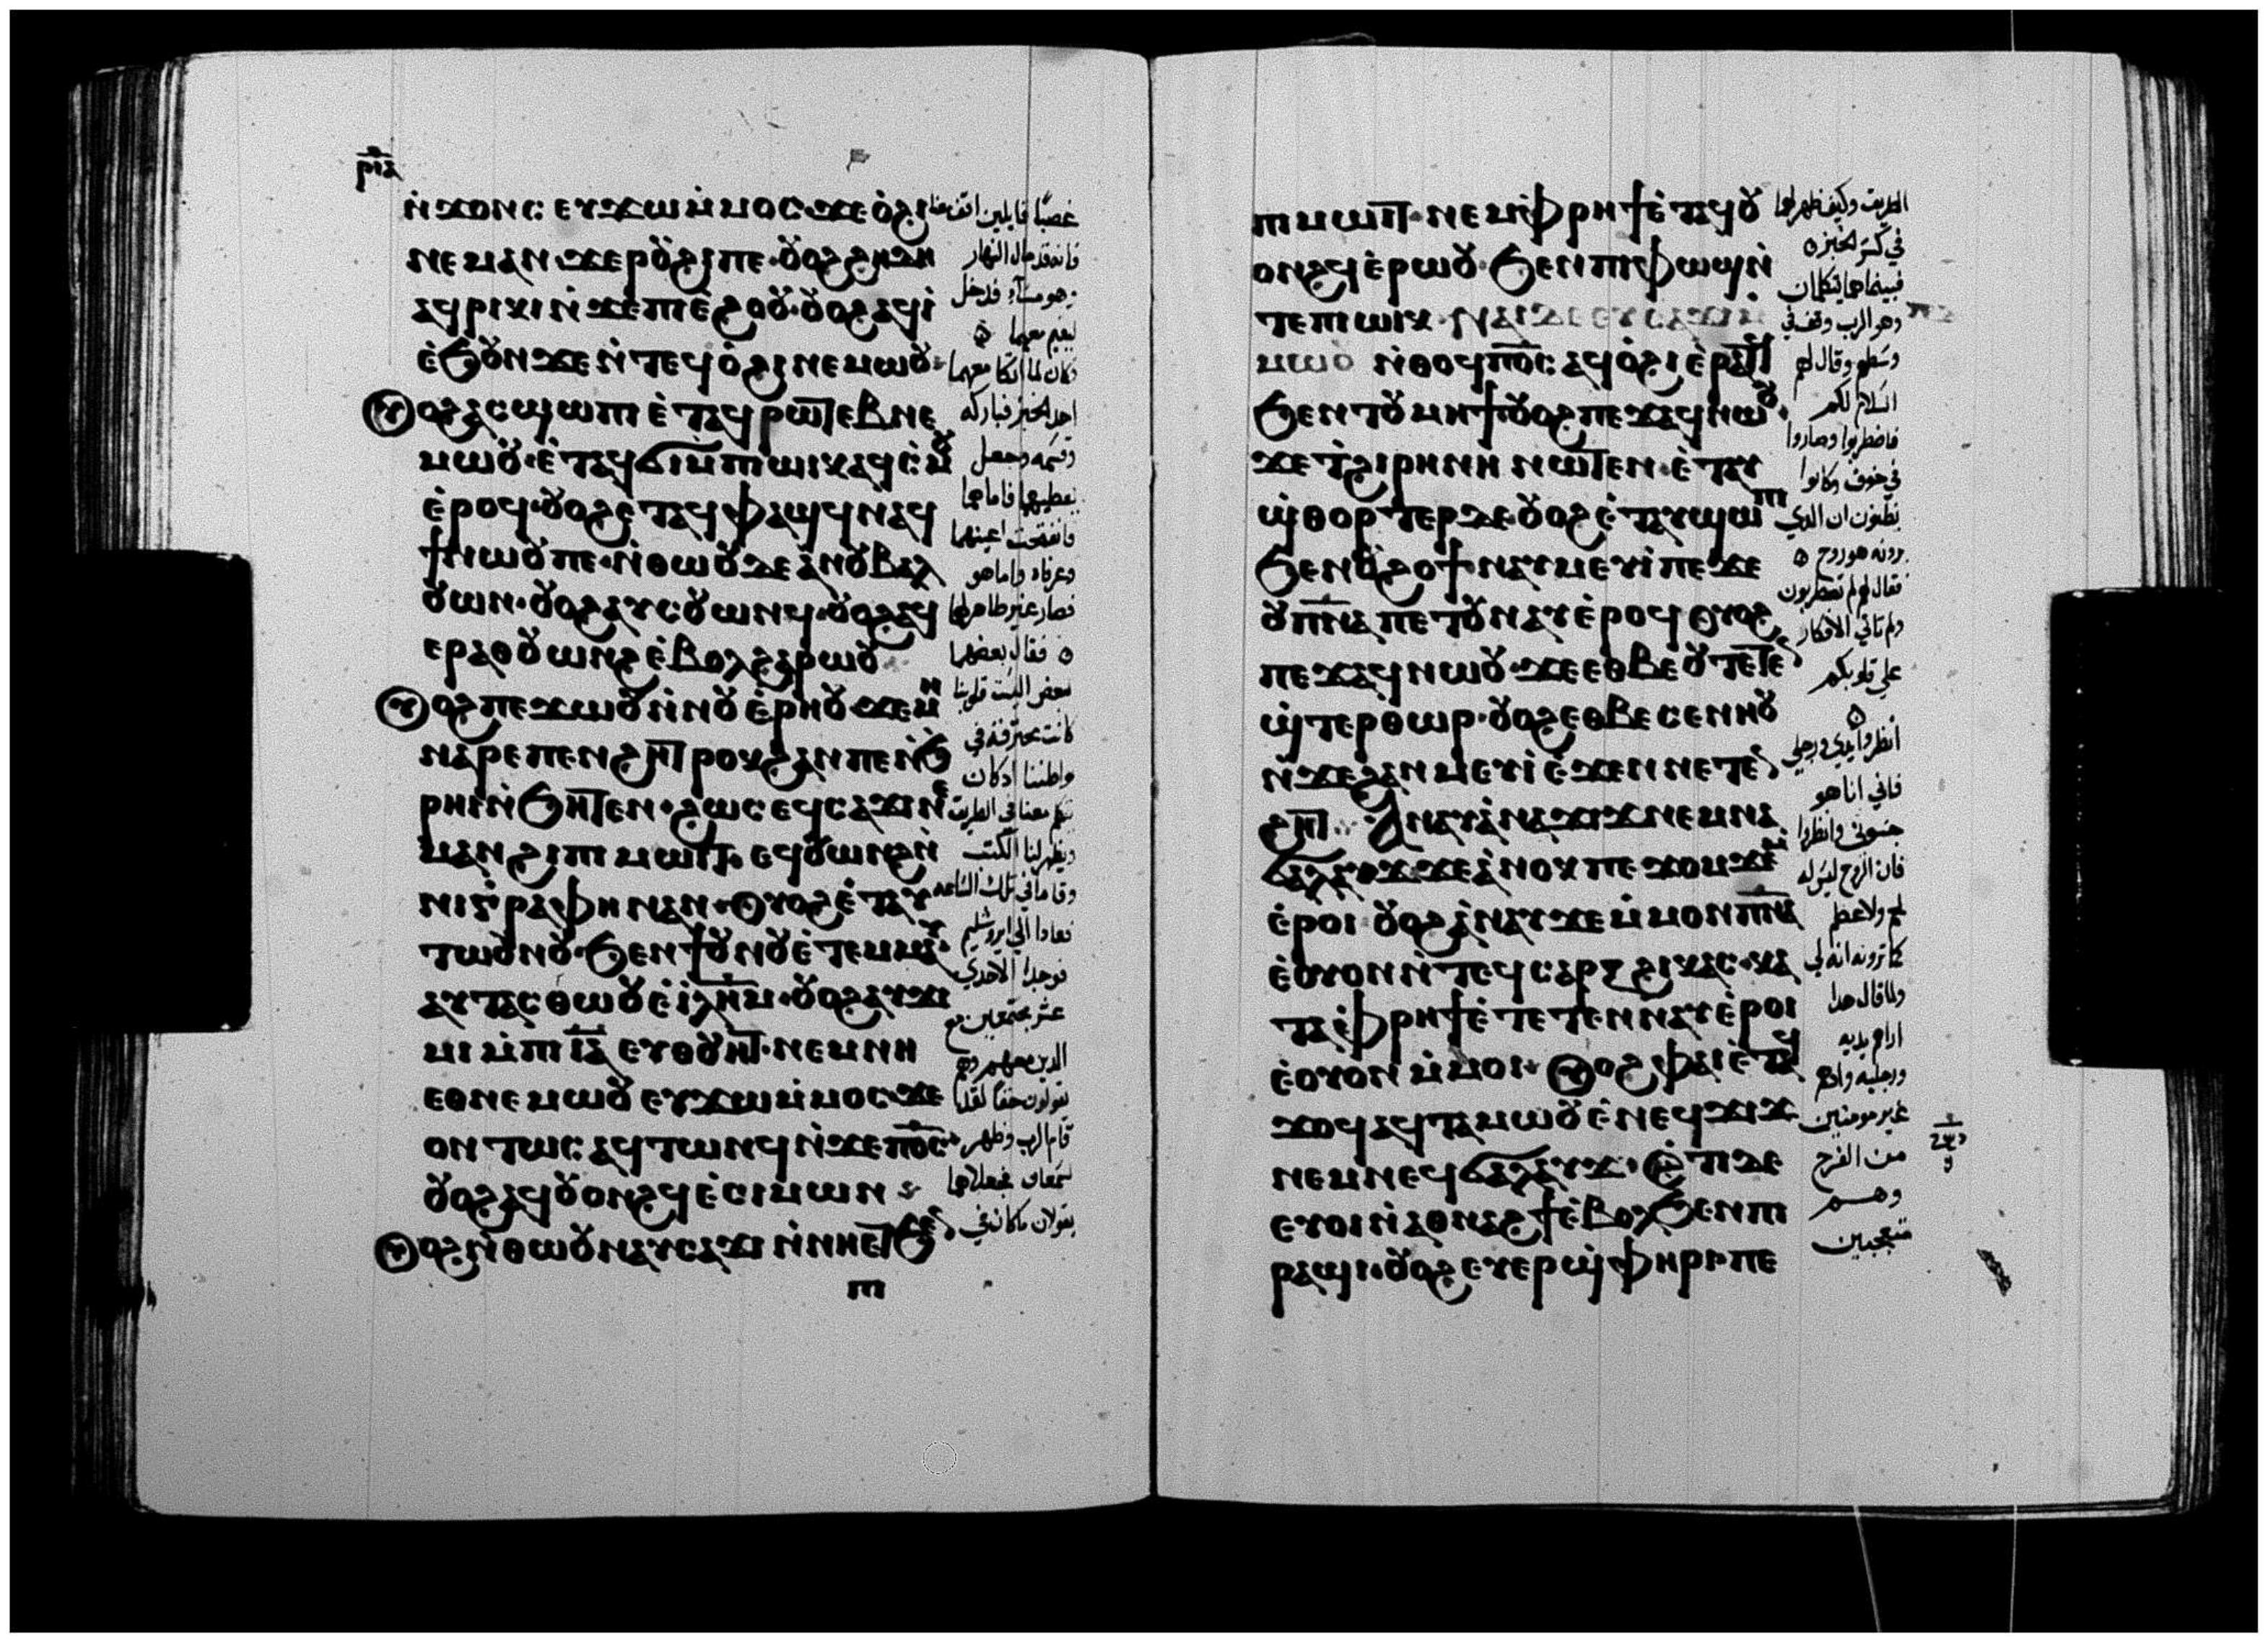 ⲣⲓⲇ
ⲛ̀ϫⲟⲛⲥ ⲉⲩϫⲱ ⲙ̀ⲙⲟⲥ ϫⲉ ⲟ̀ϩⲓ
ⲛⲉⲙⲁⲛ ϫⲉ ⲣⲟⲩϩⲓ ⲡⲉ· ⲟⲩⲟϩ ϩⲏⲇⲏ
ⲁϥⲣⲓⲕⲓ ⲛ̀ϫⲉ ⲡⲓⲉ̀ϩⲟⲟⲩ· ⲟⲩⲟϩ ⲁϥⲓ̀
ⲉ̀ϧⲟⲩⲛ ϫⲉ ⲛ̀ⲧⲉϥⲟ̀ϩⲓ ⲛⲉⲙⲱⲟⲩ
ⲟⲩⲟϩ ⲁⲥϣⲱⲡⲓ ⲉ̀ⲧⲁϥⲣⲱⲧⲉⲃ ⲛⲉ
ⲙⲱⲟⲩ· ⲉ̀ⲧⲁϥϭⲓ ⲙ̀ⲡⲓⲱⲓⲕ ⲁϥⲥ̀ⲙⲟⲩ
ⲉ̀ⲣⲟϥ· ⲟⲩⲟϩ ⲉⲧⲁϥⲫⲁϣϥ ⲛⲁϥ
ϯ ⲛⲱⲟⲩ ⲡⲉ· ⲛ̀ⲑⲱⲟⲩ ⲇⲉ ⲁ̀ ⲛⲟⲩⲃⲁⲗ
ⲟⲩⲱⲛ· ⲟⲩⲟϩ ⲁⲩⲥⲟⲩⲱⲛϥ· ⲟⲩⲟϩ ⲁϥ
ⲉⲣⲁⲑⲟⲩⲱⲛϩ ⲉ̀ⲃⲟⲗ ϩⲁⲣⲱⲟⲩ
ⲟⲩⲟϩ ⲡⲉϫⲱⲟⲩ ⲛ̀ⲛⲟⲩⲉ̀ⲣⲏⲟⲩ ϫⲉ ⲙⲏ
ⲛⲁⲣⲉ ⲡⲉⲛϩⲏⲧ ⲣⲟⲕϩ ⲁⲛ ⲡⲉ ⲛ̀ϧ
ⲣⲏⲓ ⲛ̀ϧⲏⲧⲉⲛ· ϩⲱⲥ ⲉϥⲥⲁϫⲓ ⲛⲉ
ⲙⲁⲛ ϩⲓ ⲡⲓⲙⲱⲓⲧ· ⲉϥⲟⲩⲱⲛϩ ⲛ̀
ⲛⲓⲅⲣⲁⲫⲏ ⲛⲁⲛ· ⲟⲩⲟϩ ⲉ̀ⲧⲁⲩ
ⲧⲱⲟⲩⲛⲟⲩ· ϧⲉⲛ ϯⲟⲩⲛⲟⲩ ⲉ̀ⲧⲉⲙⲙⲁⲩ·
ⲁⲩⲧⲁⲥⲑⲱⲟⲩ ⲉ̀ⲓ̀ⲗⲏⲙ· ⲟⲩⲟϩ ⲁⲩϫⲓ
ⲙⲓ ⲙ̀ⲡⲓⲓ̅ⲁ̅ ⲉⲩⲑⲟⲩⲏⲧ· ⲛⲉⲙ ⲛⲏ
ⲉⲑⲛⲉⲙⲱⲟⲩ ⲉⲩϫⲱ ⲙ̀ⲙⲟⲥ ϫⲉ
ⲟⲛⲧⲱⲥ ⲁϥⲧⲱⲛϥ ⲛ̀ϫⲉ ⲡ̅ⲟ̅ⲥ̅·
ⲟⲩⲟϩ ⲁϥⲟⲩⲟⲛϩϥ ⲉ̀ⲥⲓⲙⲱⲛ
ⲟⲩⲟϩ ⲛ̀ⲑⲱⲟⲩ ⲛⲁⲩⲥⲁϫⲓ ⲛ̀ⲛⲏⲉⲧϧⲉⲛ
ⲡⲓ
غصبًا قايلين اقم عندنا
فانه قد مال النهار
وهو مساء فدخل
ليقيم معهما
فكان لما اتكا معهما
اخذ الخبز فباركه
وقسمه وجعل
يعطيهما فاما هما
فانفتحت اعينهما
وعرفاه واما هو
فصار غير ظاهر لهما
فقال بعضهما
لبعض اليست قلوبنا
كانت محترقة في
بواطننا اذ كان
يتكلم معنا في الطريق
ويظهر لنا الكتب
وقاما في تلك الساعه
فعادا الي ايروشليم
فوجدا الاحدي
عشر مجتمعين مع
الذين معهم وهم
يقولون حقًا لقد
قام الرب وظهر
لسمعان فجعلا هما
يقولان ما كان في
ⲡⲓⲙⲱⲓⲧ· ⲛⲉⲙ ⲙ̀ⲫⲣⲏϯ ⲉ̀ⲧⲁϥⲟⲩ
ⲟⲛϩϥ ⲉ̀ⲣⲱⲟⲩ· ϧⲉⲛ ⲡⲓⲫⲱϣ ⲛ̀
ⲧⲉ ⲡⲓⲱⲓⲕ· ⲛⲁⲓ ⲇⲉ ⲉⲩⲥⲁϫⲓ ⲙ̀
ⲙⲱⲟⲩ ⲛ̀ⲑⲟϥ ⲡ̅ⲟ̅ⲥ̅ ⲁϥⲟ̀ϩⲓ ⲉ̀ⲣⲁⲧϥ
ϧⲉⲛ ⲧⲟⲩⲙⲏϯ ⲟⲩⲟϩ ⲡⲉϫⲁϥ ⲛⲱⲟⲩ·
ϫⲉ ⲧ̀ϩⲓⲣⲏⲛⲏ ⲛⲱⲧⲉⲛ· ⲉ̀ⲧⲁⲩ
ϣ̀ⲑⲟⲣⲧⲉⲣ ⲇⲉ· ⲟⲩⲟϩ ⲉ̀ⲧⲁⲩϣⲱⲡⲓ
ϧⲉⲛ ⲟⲩϩⲟϯ· ⲛⲁⲩⲙⲉⲩⲓ̀ ⲡⲉ ϫⲉ
ⲟⲩⲡ̅ⲛ̅ⲁ̅ ⲡⲉⲧⲟⲩⲛⲁⲩ ⲉ̀ⲣⲟϥ ⲟⲩⲟϩ
ⲡⲉϫⲁϥ ⲛⲱⲟⲩ· ϫⲉ ⲉⲑⲃⲉⲟⲩ ⲧⲉⲧⲉⲛ
ϣ̀ⲧⲉⲣⲑⲱⲣ· ⲟⲩⲟϩ ⲉⲑⲃⲉ ⲥⲉⲛⲏⲟⲩ
ⲛ̀ϫⲉ ϩⲁⲛⲙⲉⲩⲓ̀ ⲉ̀ϫⲉⲛ ⲛⲉⲧⲉⲛ
ϩⲏⲧ ⲁⲛⲁⲩ ⲁ̀ⲛⲁϫⲓϫ ⲛⲉⲙ ⲛⲁ
ϭⲁⲗⲁⲩϫ ϫⲉ ⲁ̀ⲛⲟⲕ ⲡⲉ ϫⲟⲙϫⲉⲙ
ⲉ̀ⲣⲟⲓ ⲟⲩⲟϩ ⲁ̀ⲛⲁⲩ ϫⲉ ⲙ̀ⲙⲟⲛ ⲡ̅ⲛ̅ⲁ̅
ⲉ̀ⲟⲩⲟⲛⲛ̀ⲧⲉϥ ⲥⲁⲣⲝ ϩⲓ ⲕⲁⲥ· ⲕⲁ
ⲧⲁ ⲉ̀ⲫⲣⲏϯ ⲉ̀ⲧⲉⲧⲉⲛⲛⲁⲩ ⲉ̀ⲣⲟⲓ
ⲉ̀ⲟⲩⲟⲛ ⲙ̀ⲙⲟⲓ· ⲟⲩⲟϩ ⲫⲁⲓ ⲉ̀ⲧⲁϥ
ϫⲟϥ ⲁϥⲧⲁⲙⲱⲟⲩ ⲉ̀ⲛⲉϥϫⲓϫ
ⲛⲉⲙ ⲛⲉϥϭⲁⲗⲁⲩϫ· ⲉ̀ⲧⲓ ⲇⲉ
ⲉⲩⲟⲓ ⲛ̀ⲁⲑⲛⲁϩϯ ⲉ̀ⲃⲟⲗ ϧⲉⲛ ⲡⲓ
ⲣⲁϣⲓ· ⲟⲩⲟϩ ⲉⲩⲉⲣϣ̀ⲫⲏⲣⲓ ⲡⲉ
الطريق وكيف ظهر لهما
في كسر الخبز
فبينما هما يتكلمان
وهو الرب وقف في
وسطهم وقال لهم
السلام لكم
فاضطربوا وصاروا
في خوف وكانوا
يظنون ان الدي
يرونه هو روح
فقال لهم لم تضطربون
ولم تاتي الافكار
علي قلوبكم
انظروا يدي ورجلي
فاني انا هو
جسوني وانظروا
فان الروح ليس له
لحم ولا عظم
كما ترونه انه لي
ولما قال هدا
اراهم يديه
ورجليه واذ هم
غير مومنين
من الفرح
وهم
متعجبين